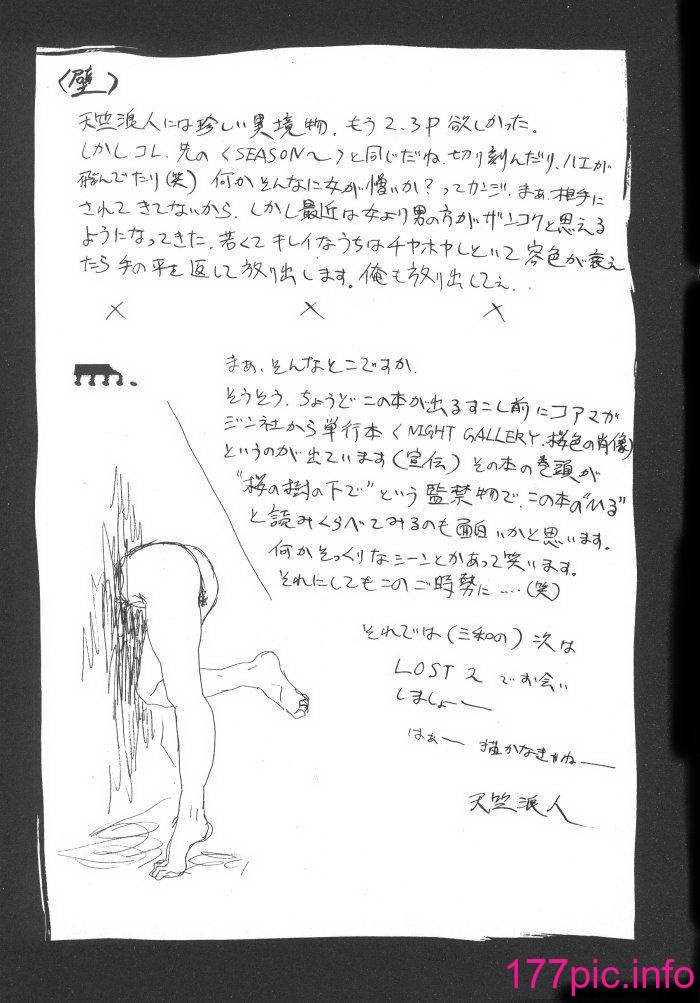 〈壁〉
天竺浪人には珍しい異境物、もう2、3P欲しかった。
しかしコレ、先の〈SEASON〜〉と同じだね、切り刻んだり、ハエが
飛んでたり(笑) 何かそんなに女が憎いか?ってカンジ、まあ、相手に
されてきてないから、しかし最近は女より男の方がザンコクと思える
ようになってきた、若くてキレイなうちはチヤホヤしといて容色が衰え
たら手の平を返して放り出します。俺も放り出してえ、、
× × ×
まあ、そんなとこですか、
そうそう、ちょうどこの本が出るすこし前にコアマガ
ジン社から単行本〈NIGHT GALLERY、桜色の肖像〉
というのが出ています(宣伝) その本の巻頭が
"桜の樹の下で"という監禁物で、この本の"いる"
と読みくらべてみるのも面白いかと思います。
何かそっくりなシーンとかあって笑います。
それにしてもこのご時勢に‥‥(笑)
それでは(三和の)次は
LOST 2 でお会い
しましょー
はぁー 描かなきゃねー
天竺浪人
177pic.info